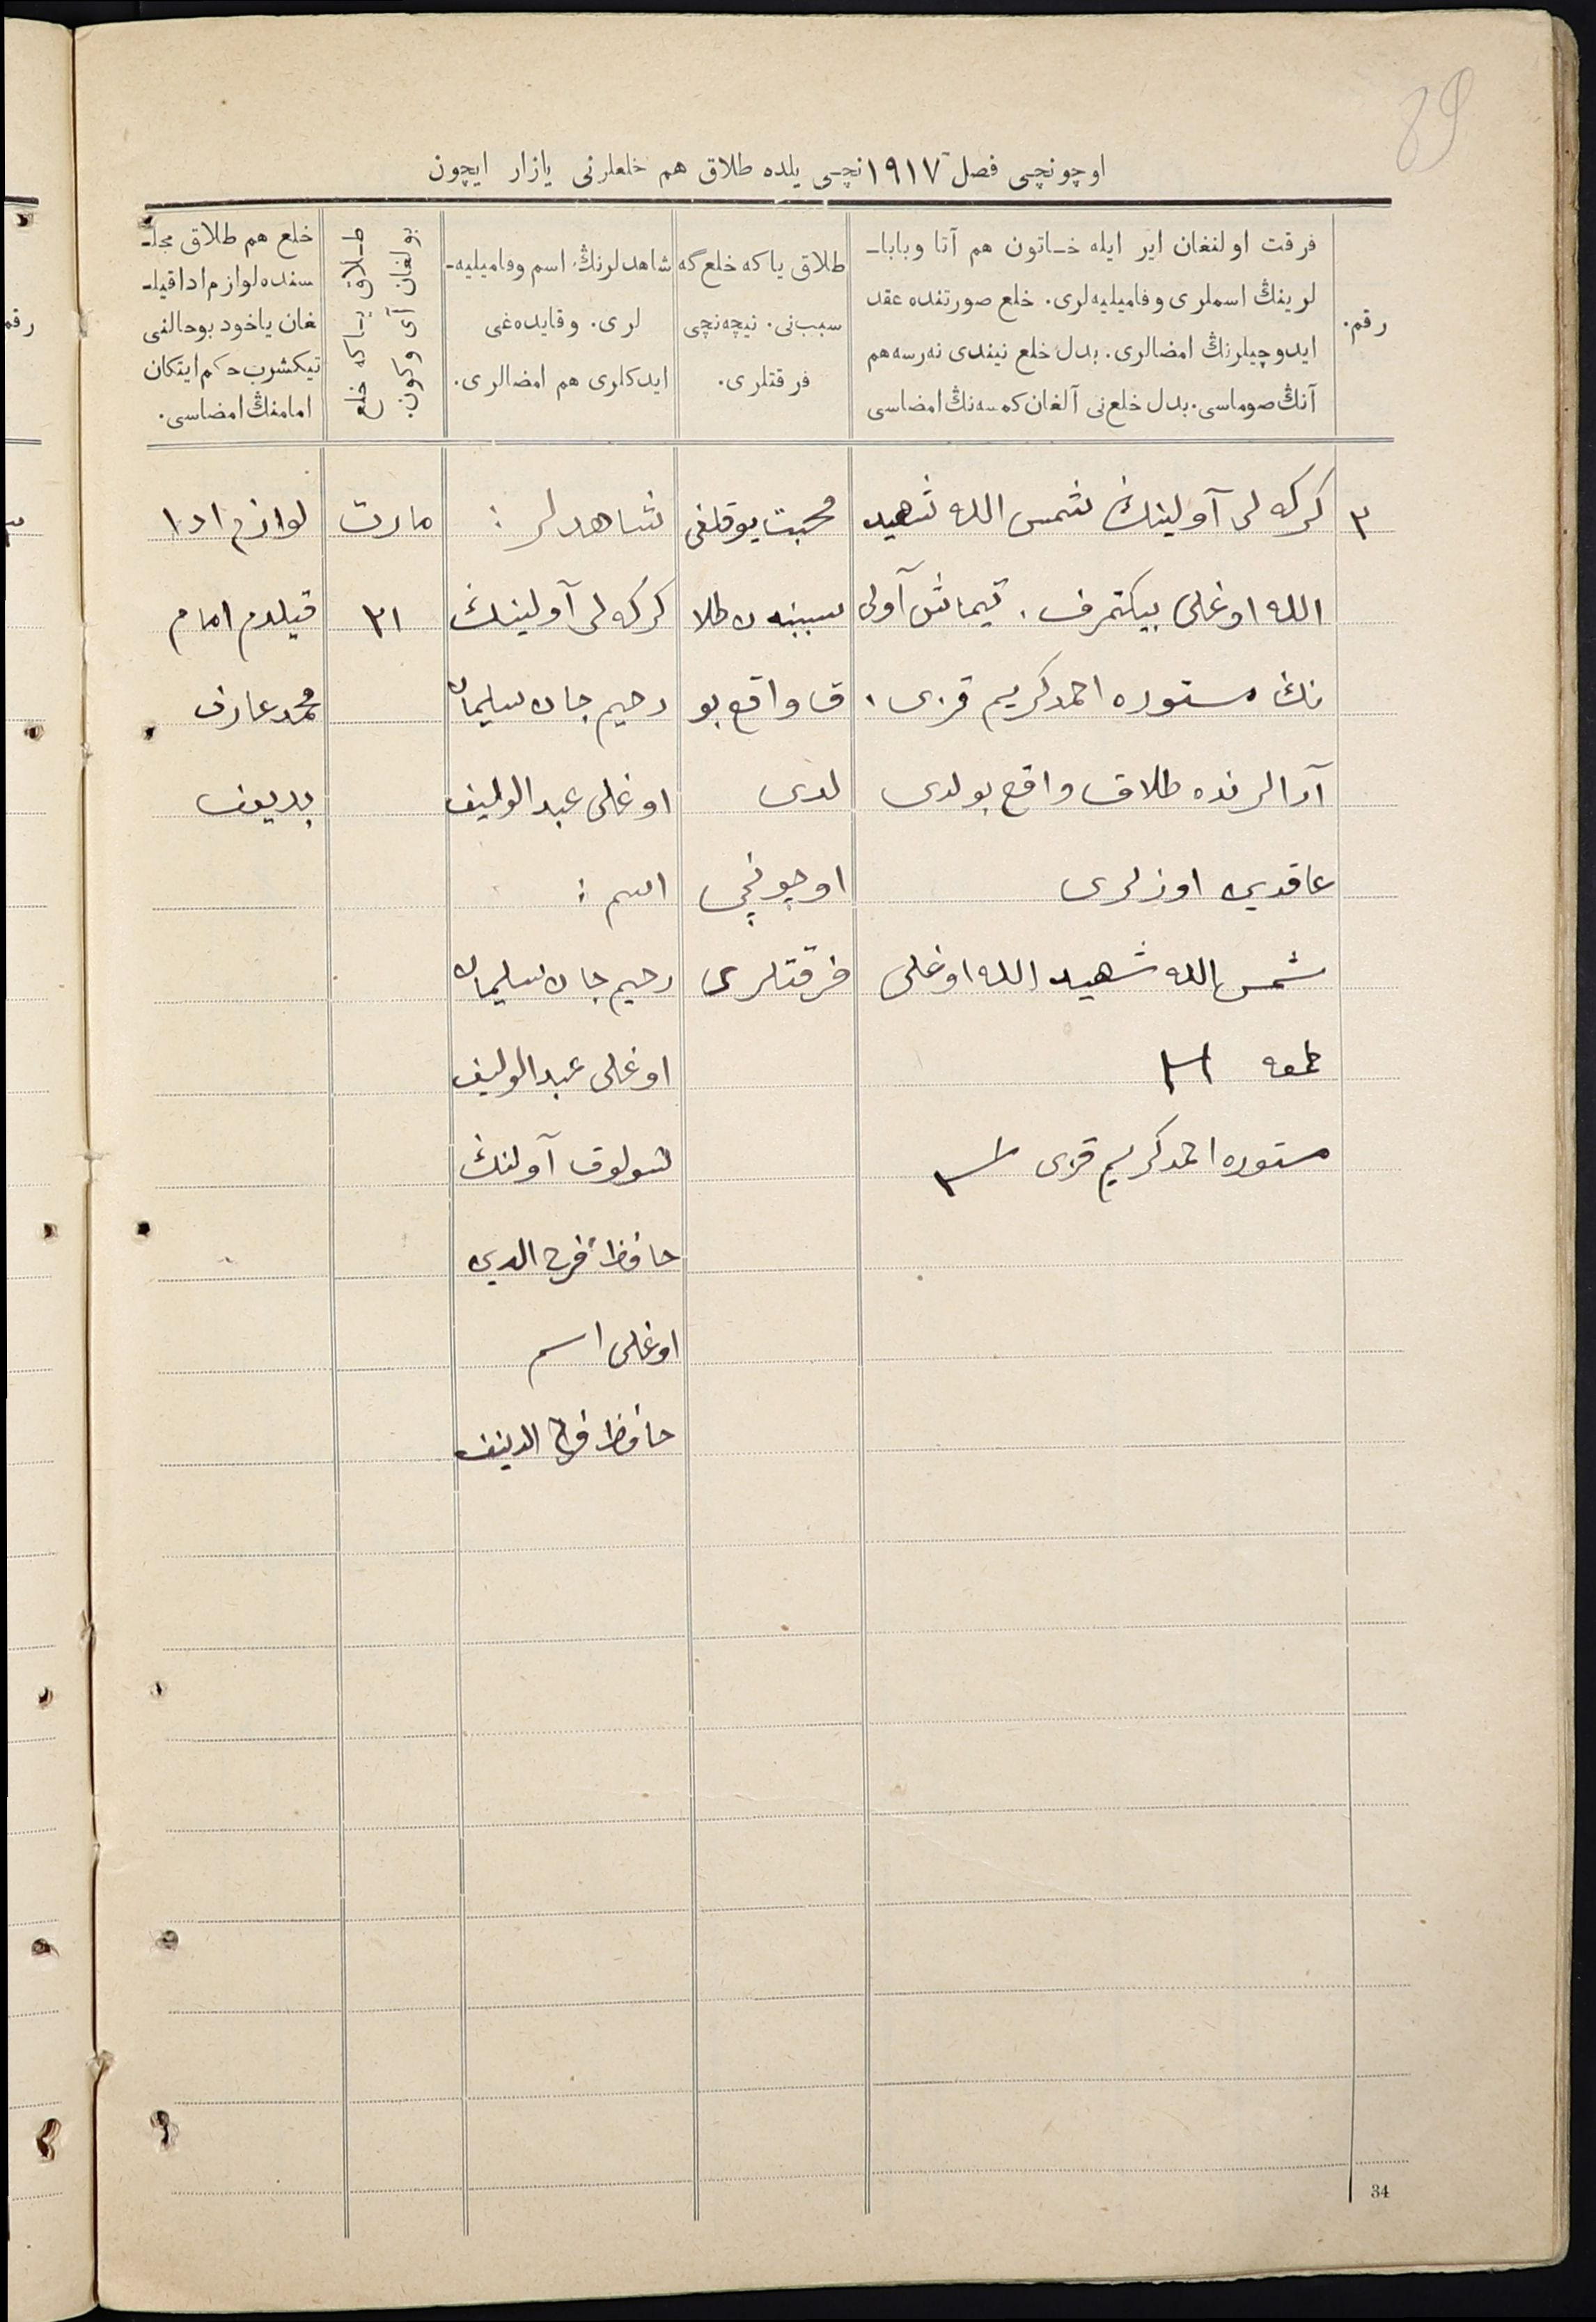 89
اوچونچی فصل ١٩١٧نچی یلده طلاق هم خلعلرنی یازار ایچون
رقم.
فرقت اولنغان ایر ایله خاتون هم آتا وبابا-
لرینڭ اسملری وفامیلیه‌لری. خلع صورتنده عقد
ایدوچیلرنڭ امضالری. بدل خلع نیندی نه‌رسه هم
آنڭ صوماسی. بدل خلع‌نی آلغان کمسه‌نڭ امضاسی
طلاق یاکه خلع گه
سبب‌نی. نیچه‌نچی
فرقتلری.
شاهدلرنڭ اسم وفامیلیه-
لری. وقایده‌غی
ایدکلری هم امضالری.
طلاق یاکه خلع
بولغان آی وکون.
خلع هم طلاق مجل-
سنده لوازم ادا قیل-
غان یاخود بوحالنی
تیکشرب حکم ایتکان
امامنڭ امضاسی.
٣
کرکه لی آولینڭ شمس الله شهید
الله اوغلی بیکتمرف. تیماش آولی
نڭ مستوره احمدکریم قزی.
آرالرنده طلاق واقع بولدی
عاقدین اوزلری
شمس الله شهید الله اوغلی
طمغه
مستوره احمدکریم قزی
محبت یوقلغی
سببنه‌ن طلا
ق واقع بو
لدی
اوچونچی
فرقتلری
شاهدلر:
کرکه لی آولینڭ
رحیم جان سلیمان
اوغلی عبدالولیف
اسم:
رحیم جان سلیمان
اوغلی عبدالولیف
آولنڭ
حافظ فرح الدین
اوغلی اسم
حافظ فرح الدینف
مارت
٣١
لوازم ادا
قیلدم امام
محمد عارف
بدیعف
34